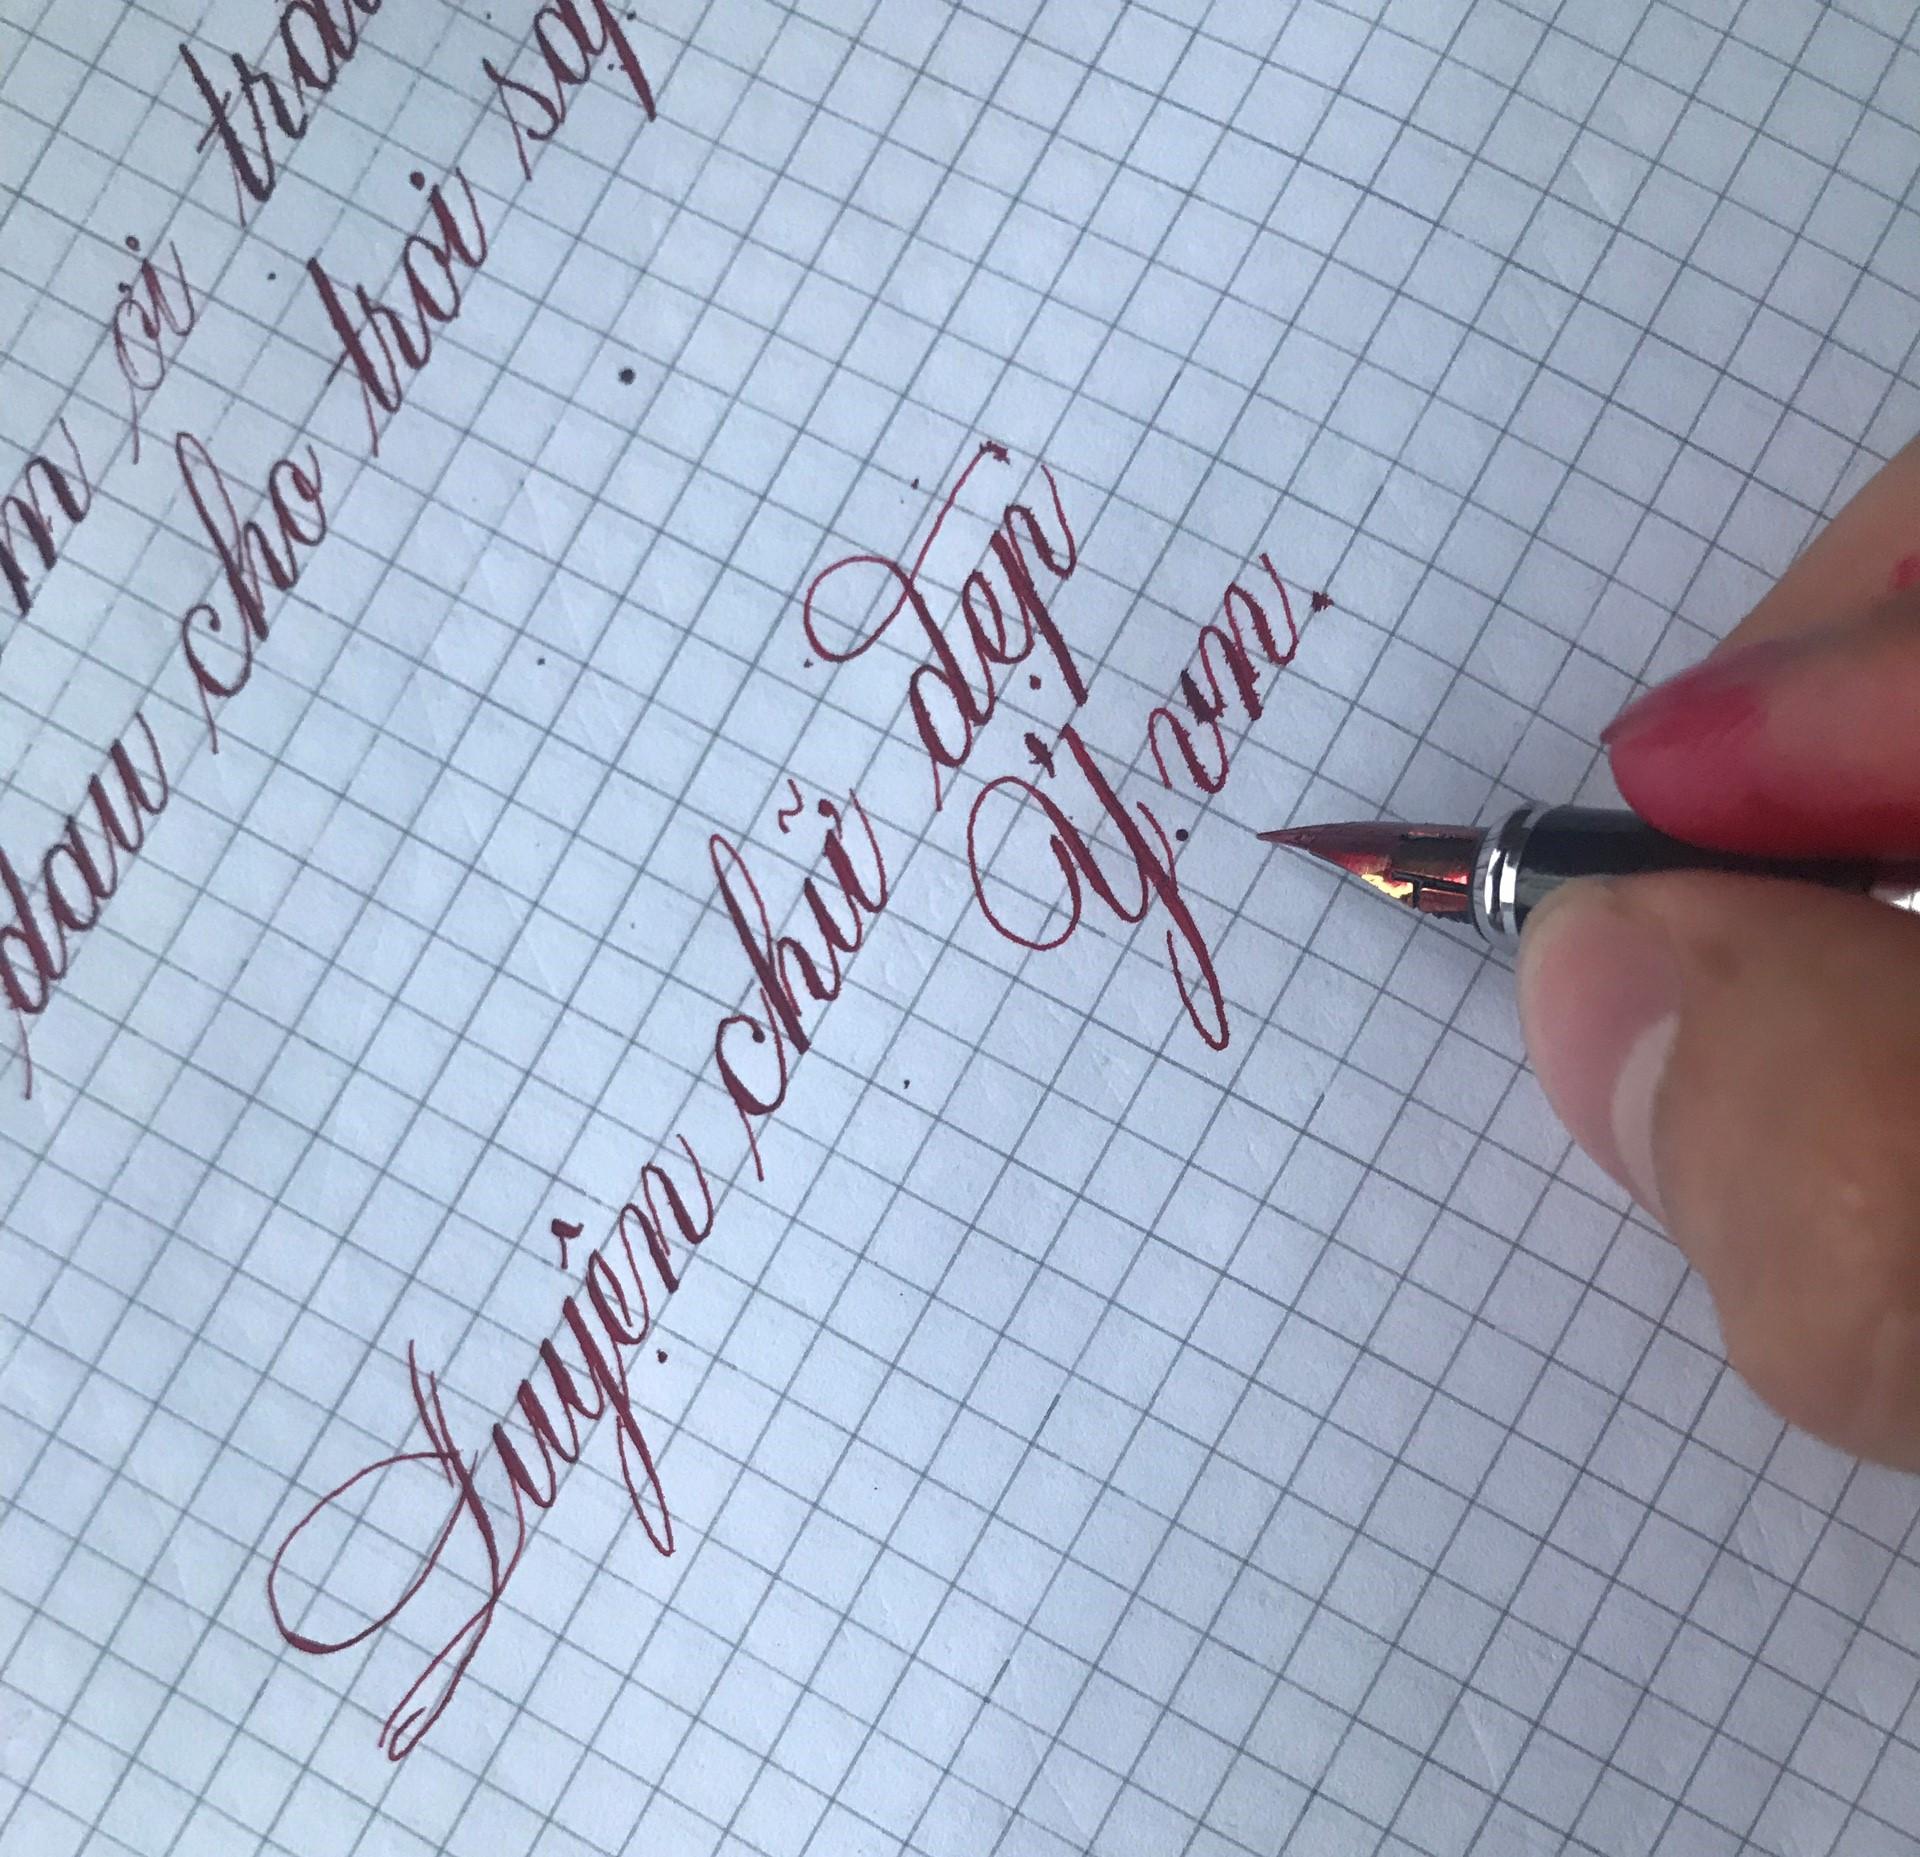 ơi
dau cho troi say
Luyện chữ đẹp
Ý.vn.